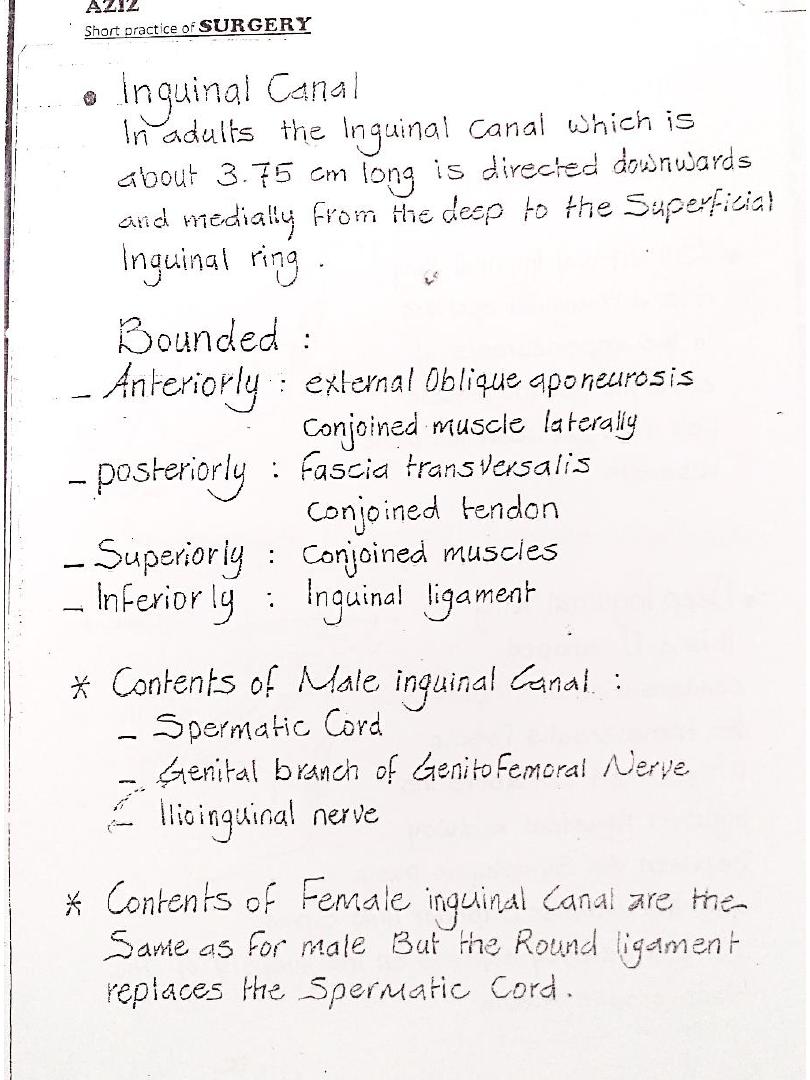 AZIZ
Short practice of SURGERY
• Inguinal Canal
In adults the Inguinal Canal which is
about 3.75 cm long is directed downwards
and medially from the deep to the Superficial
Inguinal ring .
Bounded :
- Anteriorly : external Oblique aponeurosis
Conjoined muscle laterally
- posteriorly : Fascia transversalis
Conjoined tendon
- Superiorly : Conjoined muscles
- Inferiorly : Inguinal ligament
* Contents of Male inguinal Canal :
- Spermatic Cord
- Genital branch of Genitofemoral Nerve
- Ilioinguinal nerve
* Contents of Female inguinal Canal are the
Same as for male But the Round ligament
replaces the Spermatic Cord .